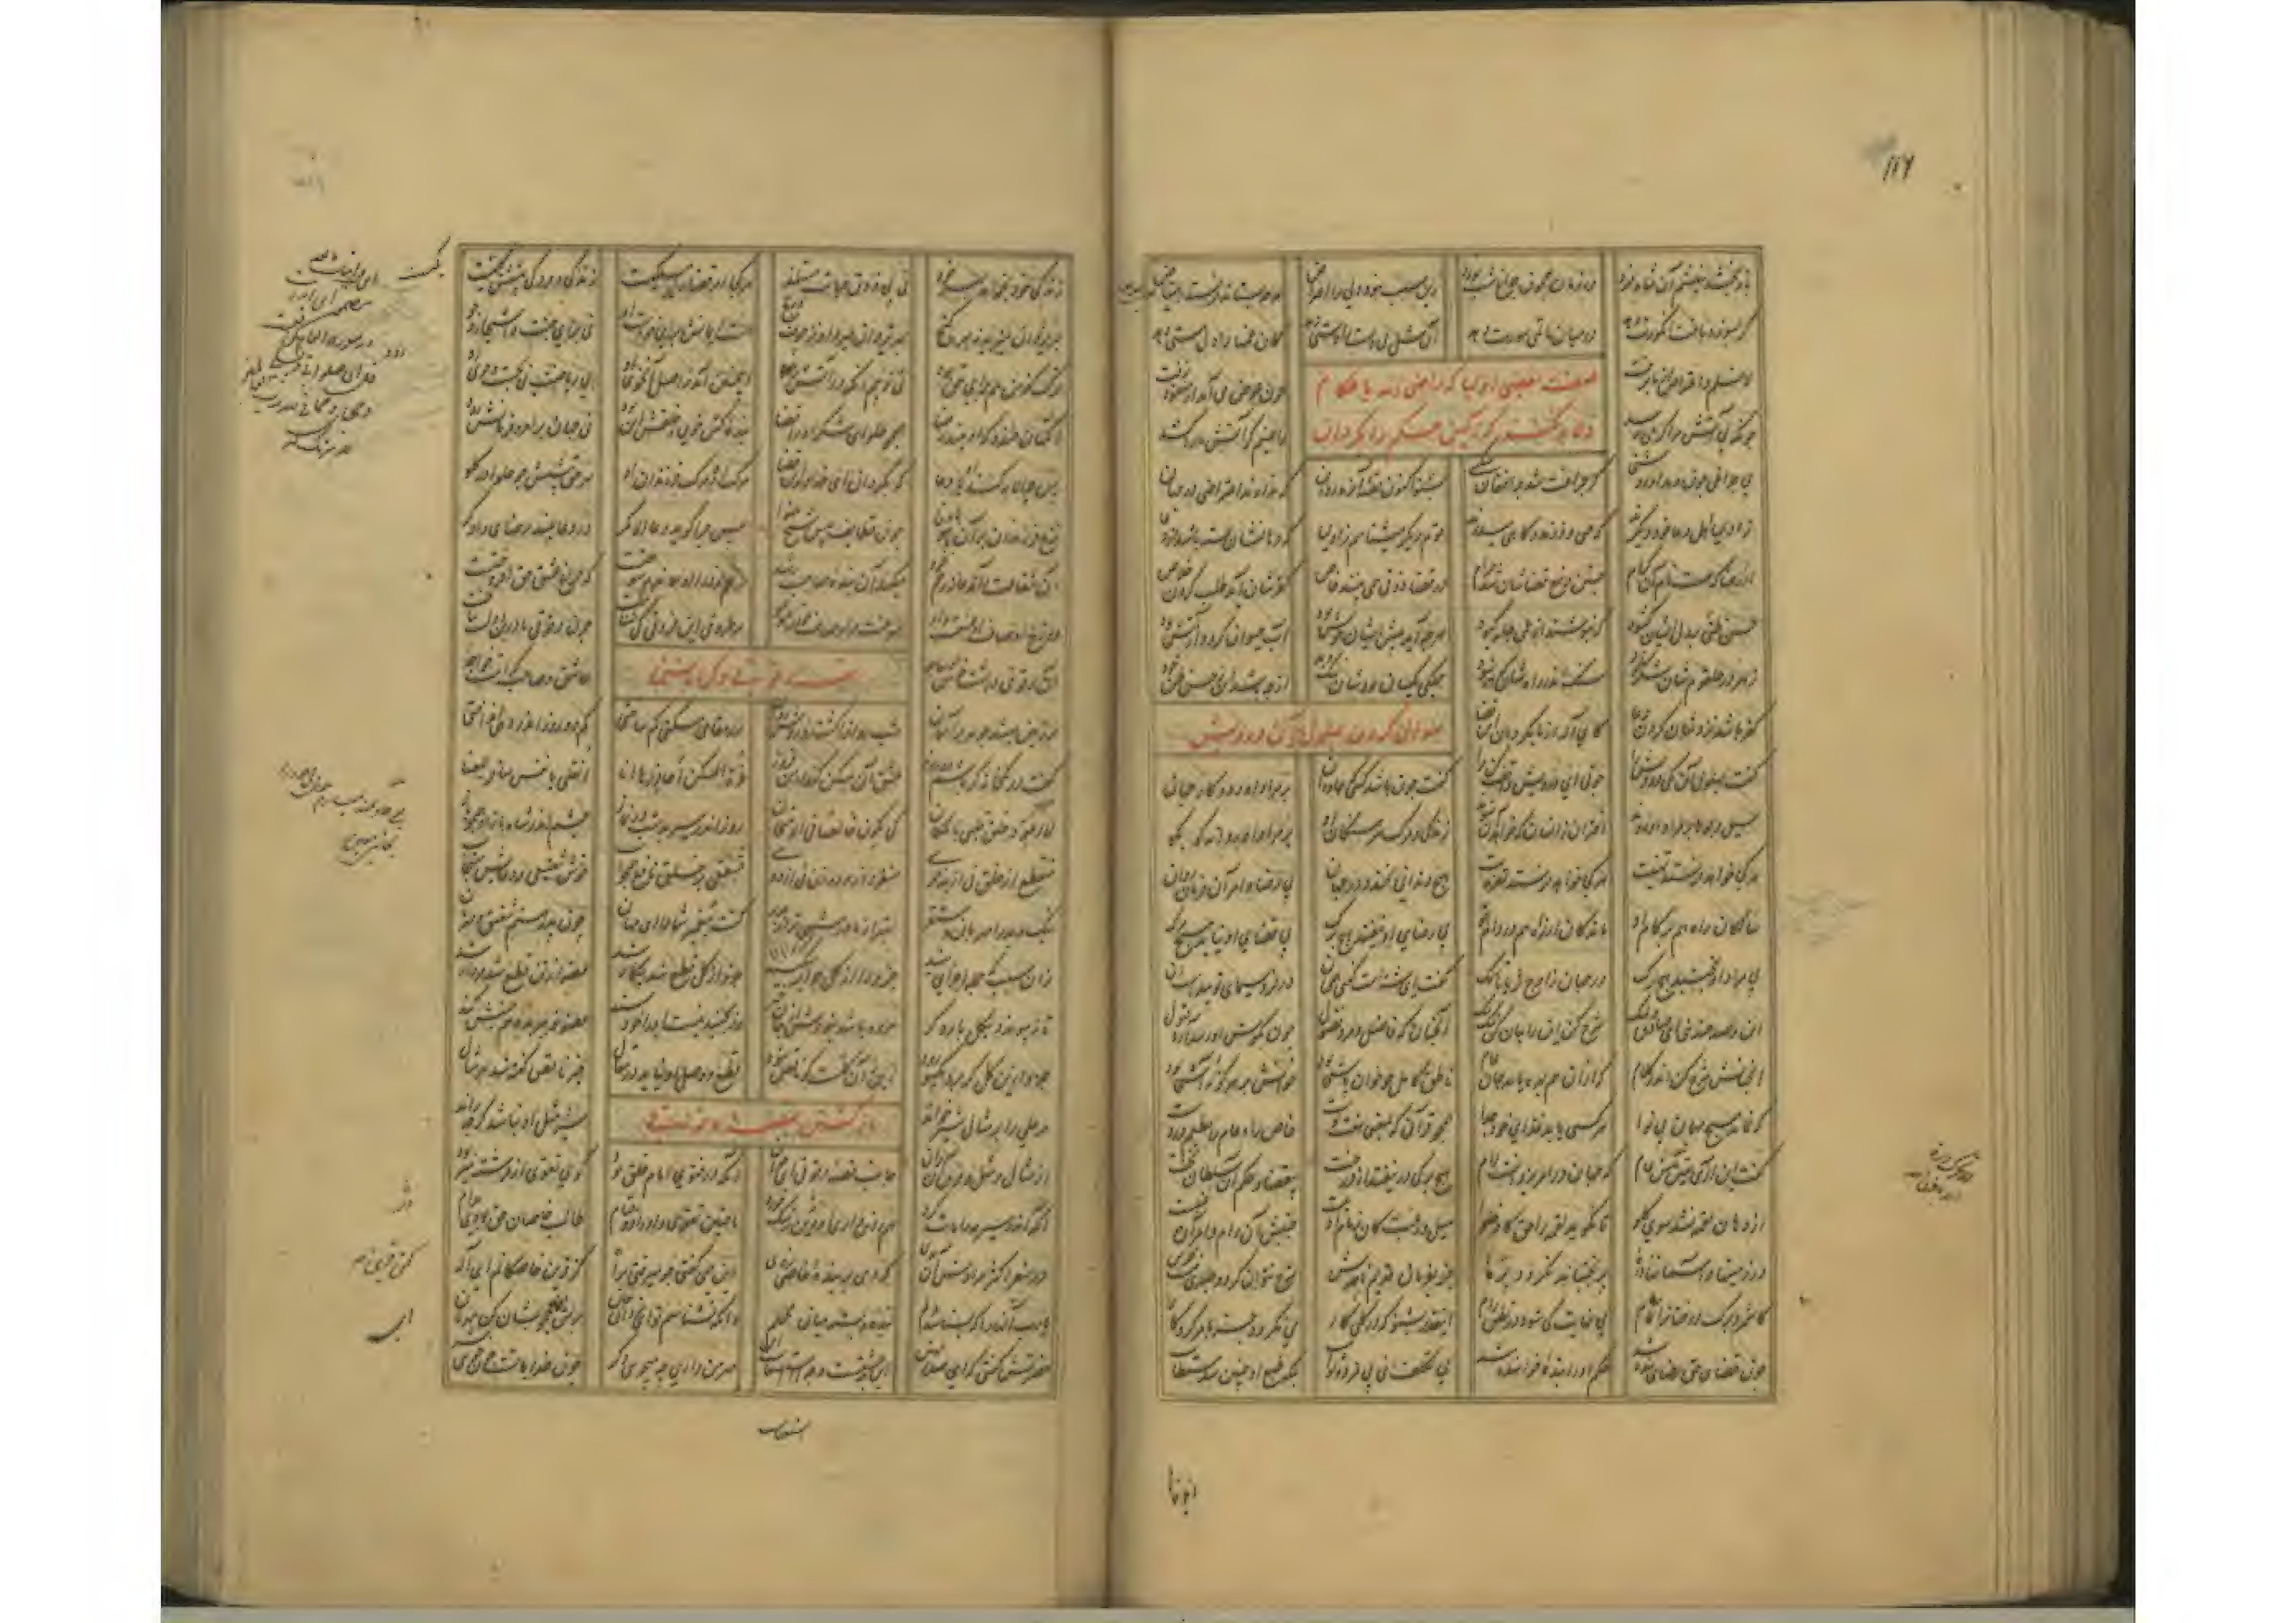 ۱۱۶
باز بخشد بینشم آن شاه فرد در زمان همچون چراغ شب نورد زین سبب نبود ولی را اعتراض هرچه بستاند فرستد اعتیاض
گر بسوزد باغت انگورت دهد در میان ماتمی سورت دهد آن شل بی دست را دستی دهد کان غمها را دل مستی دهد
لا نسلم و اعتراض از ما برفت چون عوض می آید از مفقود زفت
چونکه بی آتش مرا گرمی رسد راضیم گر آتش ما را کشد
صفت بعضی اولیا که راضی اند باحکام
و دعا نکنند که این حکم را بگردان
بی چراغی چون دهد او روشنی گر چراغت شد چه افغان می کنی بشنو اکنون قصه آن ره روان که ندارند اعتراضی در جهان
ز اولیا اهل دعا خود دیگرند گه همی دوزند و گاهی می درند قوم دیگر می شناسم ز اولیا که دهانشان بسته باشد از دعا
از رضا که هست رام آن کرام جستن دفع قضاشان شد حرام در قضا ذوقی همی بینند خاص کفرشان آید طلب کردن خلاص
حسن ظنی بر دل ایشان گشود که نپوشند از غمی جامه کبود هرچه آید پیش ایشان خوش بود آب حیوان گردد ار آتش بود
زهر در حلقومشان شکر بود سنگ اندر راهشان گوهر بود جملگی یکسان بودشان نیک و بد از چه باشد این ز حسن ظن خود
کفر باشد نزدشان کردن دعا کای اله از ما بگردان این قضا
سوال کردن بهلول از آن درویش
گفت بهلول آن یکی درویش را چونی ای درویش واقف کن مرا گفت چون باشد کسی که جاودان بر مراد او رود کار جهان
سیل و جوها بر مراد او روند اختران زان سان که خواهد آن شوند زندگی و مرگ سرهنگان او بر مراد او روانه کو بکو
هر کجا خواهد فرستد تهنیت هر کجا خواهد فرستد تعزیت هیچ دندانی نخندد در جهان بی رضا و امر آن فرمان روان
سالکان راه هم بر کام او ماندگان از راه هم در دام او بی رضای او نیفتد هیچ برگ بی قضای او نیاید هیچ مرگ
بی مراد او نجنبد هیچ رگ در جهان ز اوج ثریا تا سمک گفت ای شه راست گفتی همچنین در فر و سیمای تو پیداست این
این و صد چندینی ای صادق ولیک شرح کن این را بیان کن نیک نیک آنچنان که فاضل و مرد فضول چون بگوش او رسد آرد قبول
آنچنانش شرح کن اندر کلام که از آن هم بهره یابد جان عام ناطق کامل چو خوان باشی بود خوانش پر هر گونه آشی بود
که نماند هیچ مهمان بی نوا هر کسی یابد غذای خود جدا همچو قرآن که بمعنی هفت توست خاص را و عام را مطعم دروست
گفت این باری یقین شد پیش عام که جهان در امر یزدانست رام هیچ برگی در نیفتد از درخت بی قضا و حکم آن سلطان بخت
از دهان لقمه نشد سوی گلو تا نگوید لقمه را حق کادخلوا میل و رغبت کان زمام آدمیست جنبش آن رام امر آن غنیست
در زمینها و آسمانها ذره پر نجنباند نگردد پره جز بفرمان قدیم نافذش شرح نتوان کرد و جلدی نیست خوش
که شمرد برگ درختان را تمام بی نهایت کی شود در نطق رام اینقدر بشنو که چون کلی کار می نگردد جز بامر کردگار
چون قضای حق رضای بنده شد حکم او را بنده خواهنده شد بی تکلف نی پی مزد و ثواب بلکه طبع او چنین شد مستطاب
زندگی خود نخواهد بهر خود نی پی ذوق حیات مستلذ هر کجا امر قدم را مسلکیست زندگی و مردگی پیشش یکیست
بهر یزدان می زید نی بهر گنج بهر یزدان می مرد نز خوف رنج هست ایمانش برای خواست او نی برای جنت و اشجار و جو
ترک کفرش هم برای حق بود نی ز بیم آنکه در آتش رود این چنین آمد ز اصل آن خوی او نی ریاضت نی بجست و جوی او
آنگهان خندد که او بیند رضا همچو حلوای شکر او را قضا بنده کش خوی و خلقت این بود نی جهان بر امر و فرمانش رود
پس چرا لابه کند او یا دعا که بگردان ای خداوند این قضا مرگ او و مرگ فرزندان او بهر حق پیشش چو حلوا در گلو
نزع فرزندان بر آن باوفا چون قطایف پیش شیخ بی نوا پس چرا گوید دعا الا مگر در دعا بیند رضای دادگر
آن شفاعت وان دعا نه از رحم خود می کند آن بنده صاحب رشد رحم خود را او همان دم سوختست که چراغ عشق حق افروختست
دوزخ اوصاف او عشقست و او سوخت مر اوصاف خود را مو بمو هر طروقی این فروقی کی شناخت چون دقوقی تا در این دولت بتاخت
قصه دقوقی و کراماتش
آن دقوقی داشت خوش دیباجه عاشق و صاحب کرامت خواجه
بر زمین می شد چو مه بر آسمان شب روان را گشته زو روشن روان در مقامی مسکنی کم ساختی کم دو روز اندر دهی انداختی
گفت در یک خانه گر باشم دو روز عشق آن مسکن کند در من فروز غرة المسکن احاذره انا انقلی یا نفس سیری للغنا
لا اعود خلق قلبی بالمکان کی یکون خالصا فی الامتحان روز اندر سیر بد شب در نماز چشم اندر شاه باز او همچو باز
منقطع از خلق نی از بد خوی منفرد از مرد و زن نی از دوی مشفقی بر خلق و نافع همچو آب خوش شفیعی و دعایش مستجاب
نیک و بد را مهربان و مستقر بهتر از مادر شهی تر از پدر گفت پیغمبر شما را ای مهان چون پدر هستم شفیق و مهربان
زان سبب که جمله اجزای منید جزو را از کل چرا بر می کنید جزو از کل قطع شد بیکار شد عضو از تن قطع شد مردار شد
تا نپیوندد بکل بار دگر مرده باشد نبودش از جان خبر ور بجنبد نیست آن را خود سند عضو نو ببریده هم جنبش کند
جزو ازین کل گر برد یکسو رود این نه آن کلست کو ناقص شود قطع و وصل او نیاید در مقال چیز ناقص گفته شد بهر مثال
مر علی را بر مثالی شیر خواند شیر مثل او نباشد گرچه راند
بازگشتن بقصه دقوقی
از مثال و مثل و فرق آن بران جانب قصه دقوقی ای جوان آنکه در فتوی امام خلق بود گوی تقوی از فرشته می ربود
آنکه اندر سیر مه را مات کرد هم ز دین داری او دین رشک خورد با چنین تقوی و اوراد و قیام طالب خاصان حق بودی مدام
در سفر اکثر مرادش آن بدی که دمی بر بنده خاصی زدی این همی گفتی چو می رفتی براه کن قرین خاصگانم ای اله
یا رب آنها را که بشناسد دلم بنده و بسته میان و مجملم وانکه نشناسم تو ای یزدان جان بر من محجوبشان کن مهربان
حضرتش گفتی که ای صدر مهین این چه عشقست و چه استسقاست این مهر من داری چه می جویی دگر چون خدا با تست چون جویی بشر